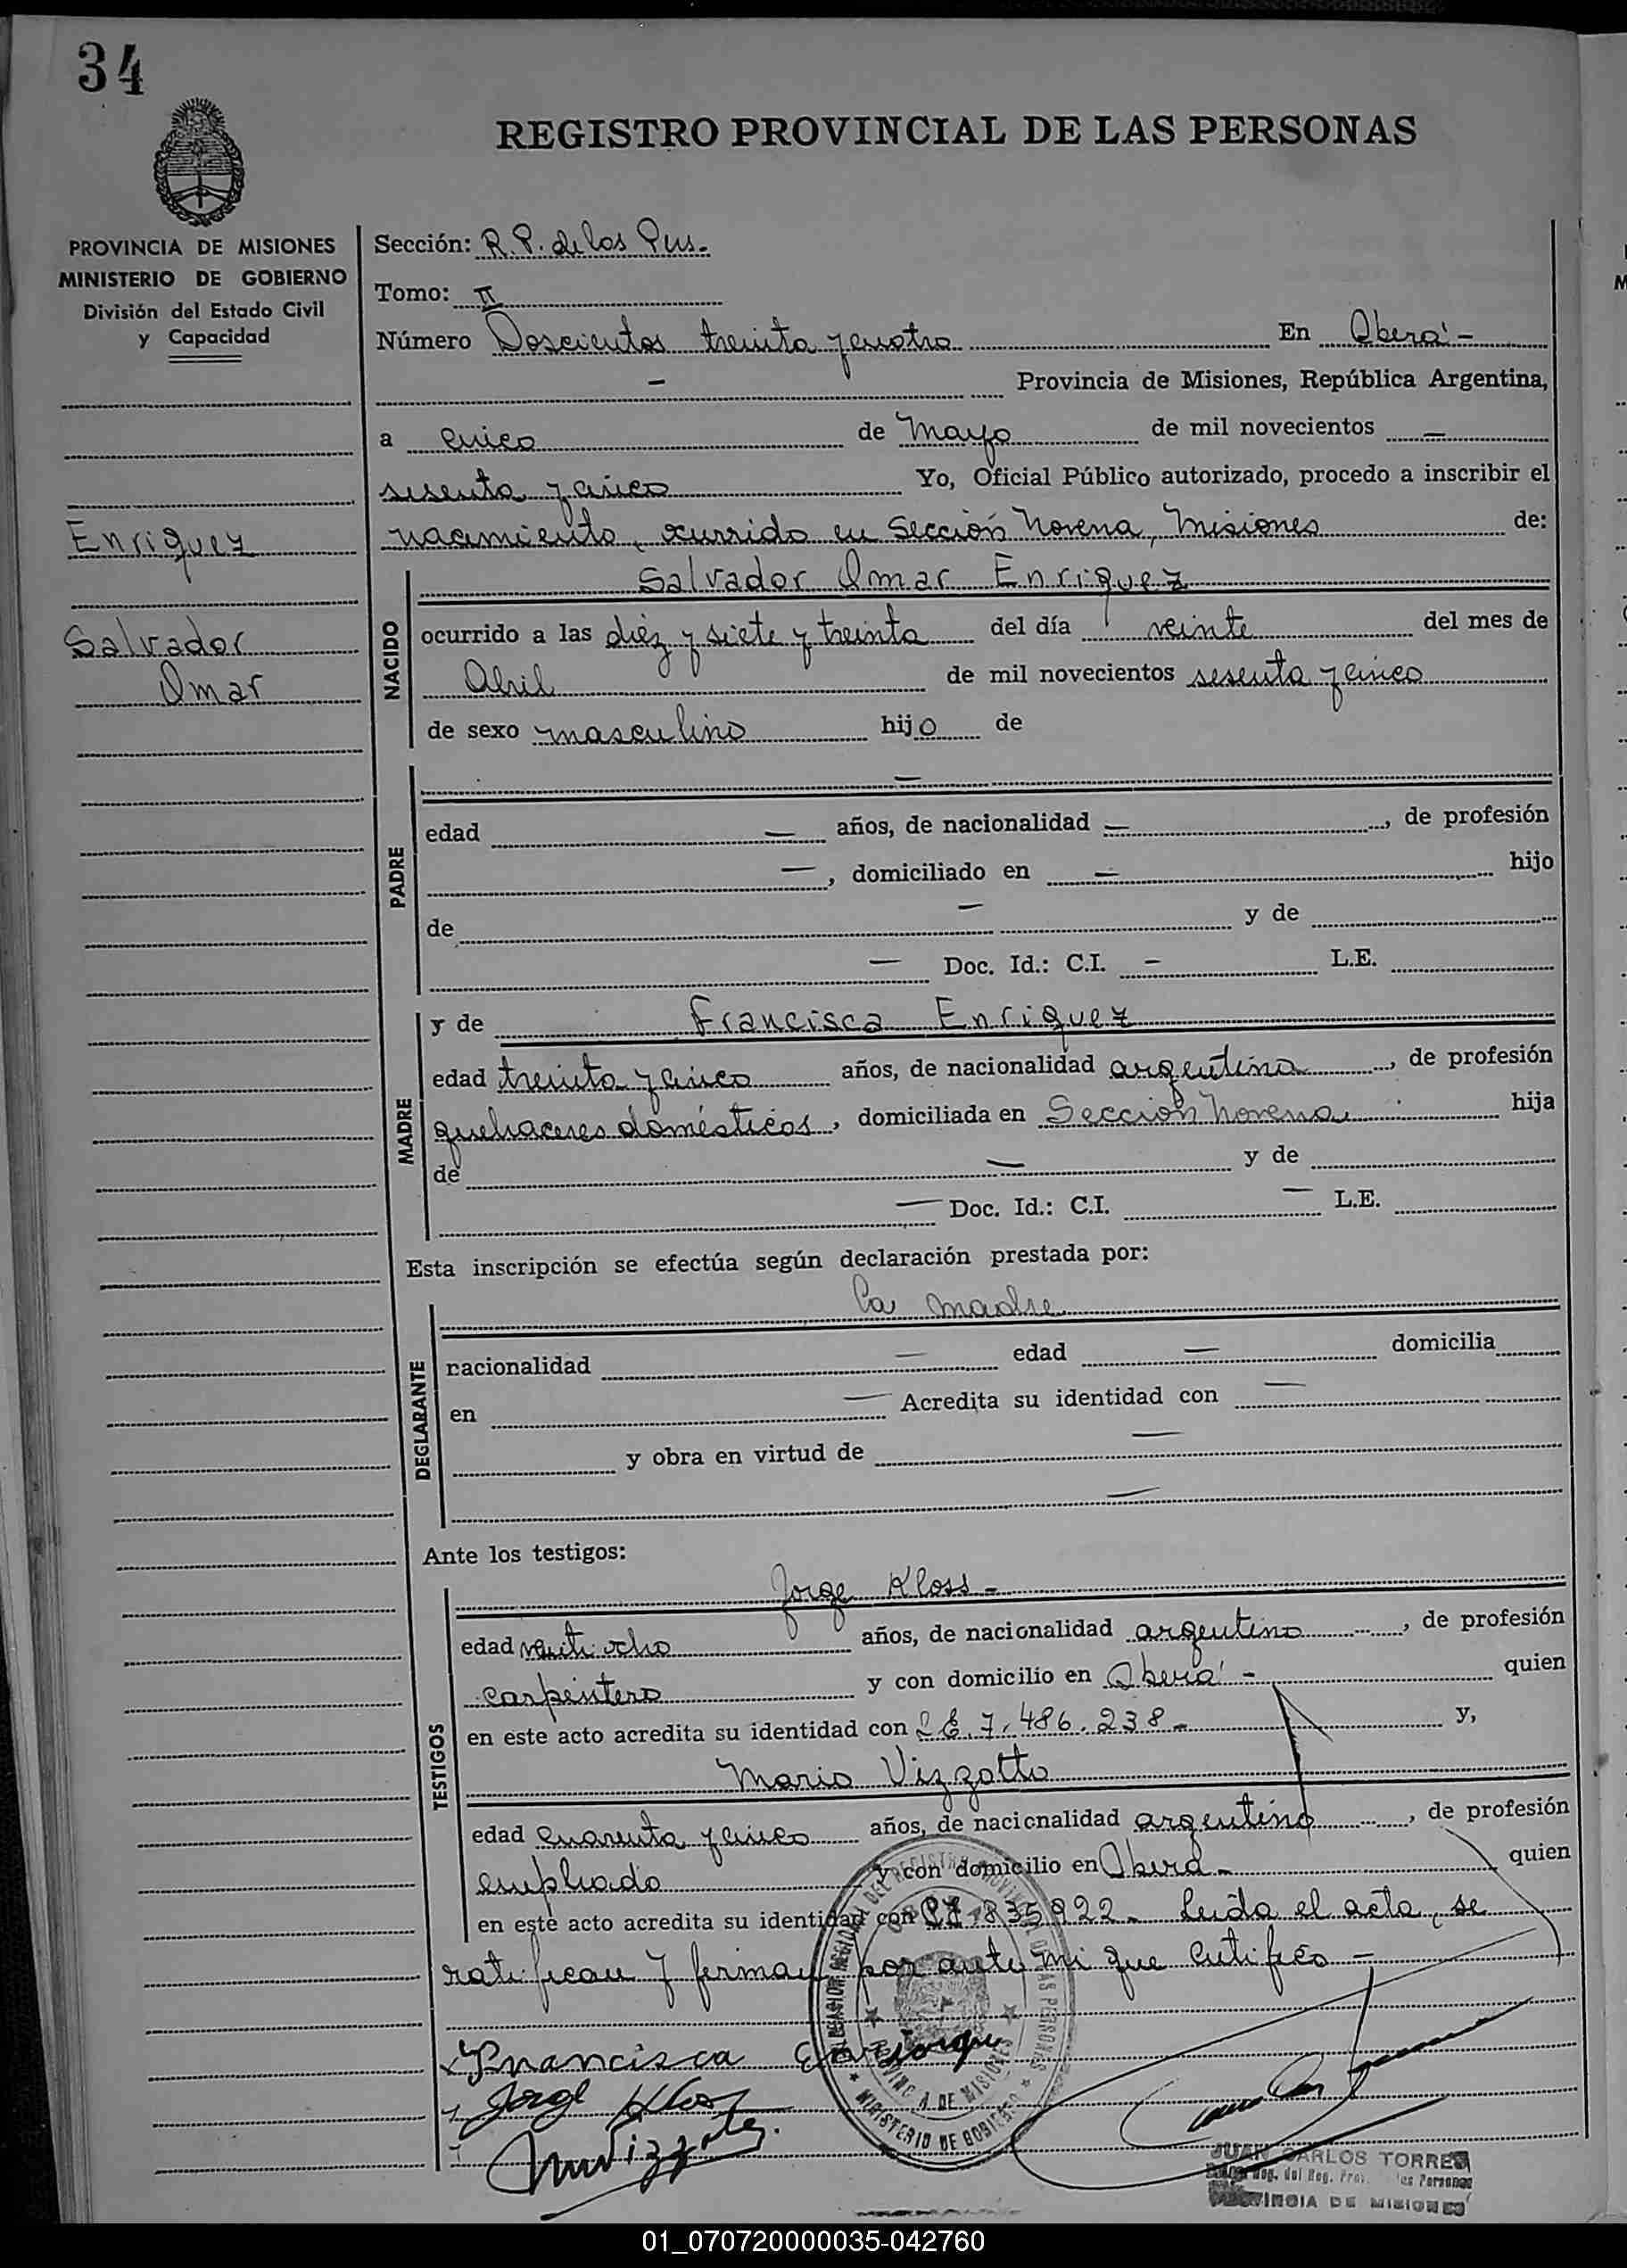 34
REGISTRO PROVINCIAL DE LAS PERSONAS
PROVINCIA DE MISIONES
MINISTERIO DE GOBIERNO
División del Estado Civil
y Capacidad
Enriquez
Salvador
Omar
Sección: R. P. de los Pers.
Tomo: II
Número Doscientos treinta y cuatro En Oberá -
- Provincia de Misiones, República Argentina,
a cinco de Mayo de mil novecientos -
sesenta y cinco Yo, Oficial Público autorizado, procedo a inscribir el
nacimiento, ocurrido en Sección Novena, Misiones de:
NACIDO
Salvador Omar Enriquez
ocurrido a las diéz y siete y treinta del día veinte del mes de
Abril de mil novecientos sesenta y cinco
de sexo masculino hijo de
PADRE
-
edad - años, de nacionalidad -, de profesión
-, domiciliado en - hijo
de - y de
- Doc. Id.: C.I. - L.E.
MADRE
y de Francisca Enriquez
edad treinta y cinco años, de nacionalidad argentina, de profesión
quehaceres domésticos, domiciliada en Sección Novena, hija
de - y de
- Doc. Id.: C.I. - L.E.
Esta inscripción se efectúa según declaración prestada por:
DECLARANTE
La madre
nacionalidad - edad - domicilia
en - Acredita su identidad con -
y obra en virtud de -
-
Ante los testigos:
TESTIGOS
Jorge Kloss -
edad veintiocho años, de nacionalidad argentino, de profesión
carpintero y con domicilio en Oberá - quien
en este acto acredita su identidad con LE 7.486.238 - y,
Mario Vizzotto
edad cuarenta y cinco años, de nacionalidad argentino, de profesión
empleado y con domicilio en Oberá - quien
en este acto acredita su identidad con Leida el acta, se
ratifican y firman por ante mi que certifico -
Francisca
Jorge Kloss
JUAN CARLOS TORRES
PROVINCIA DE MISIONES
MINISTERIO DE GOBIERNO
PROVINCIA DE MISIONES
01_070720000035-042760